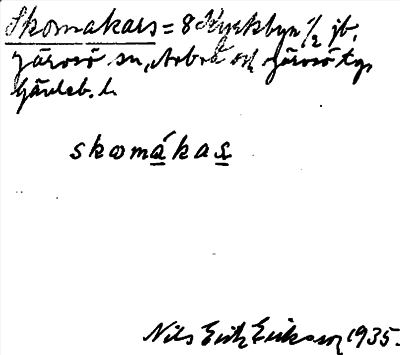 Skomakars = 8 Kyrkbyn 1/2 jb.
Järvsö sn, Arbrå och Järvsö tg,
Gävleb. l.
skomákas
Nils Erik Eriksson 1935.